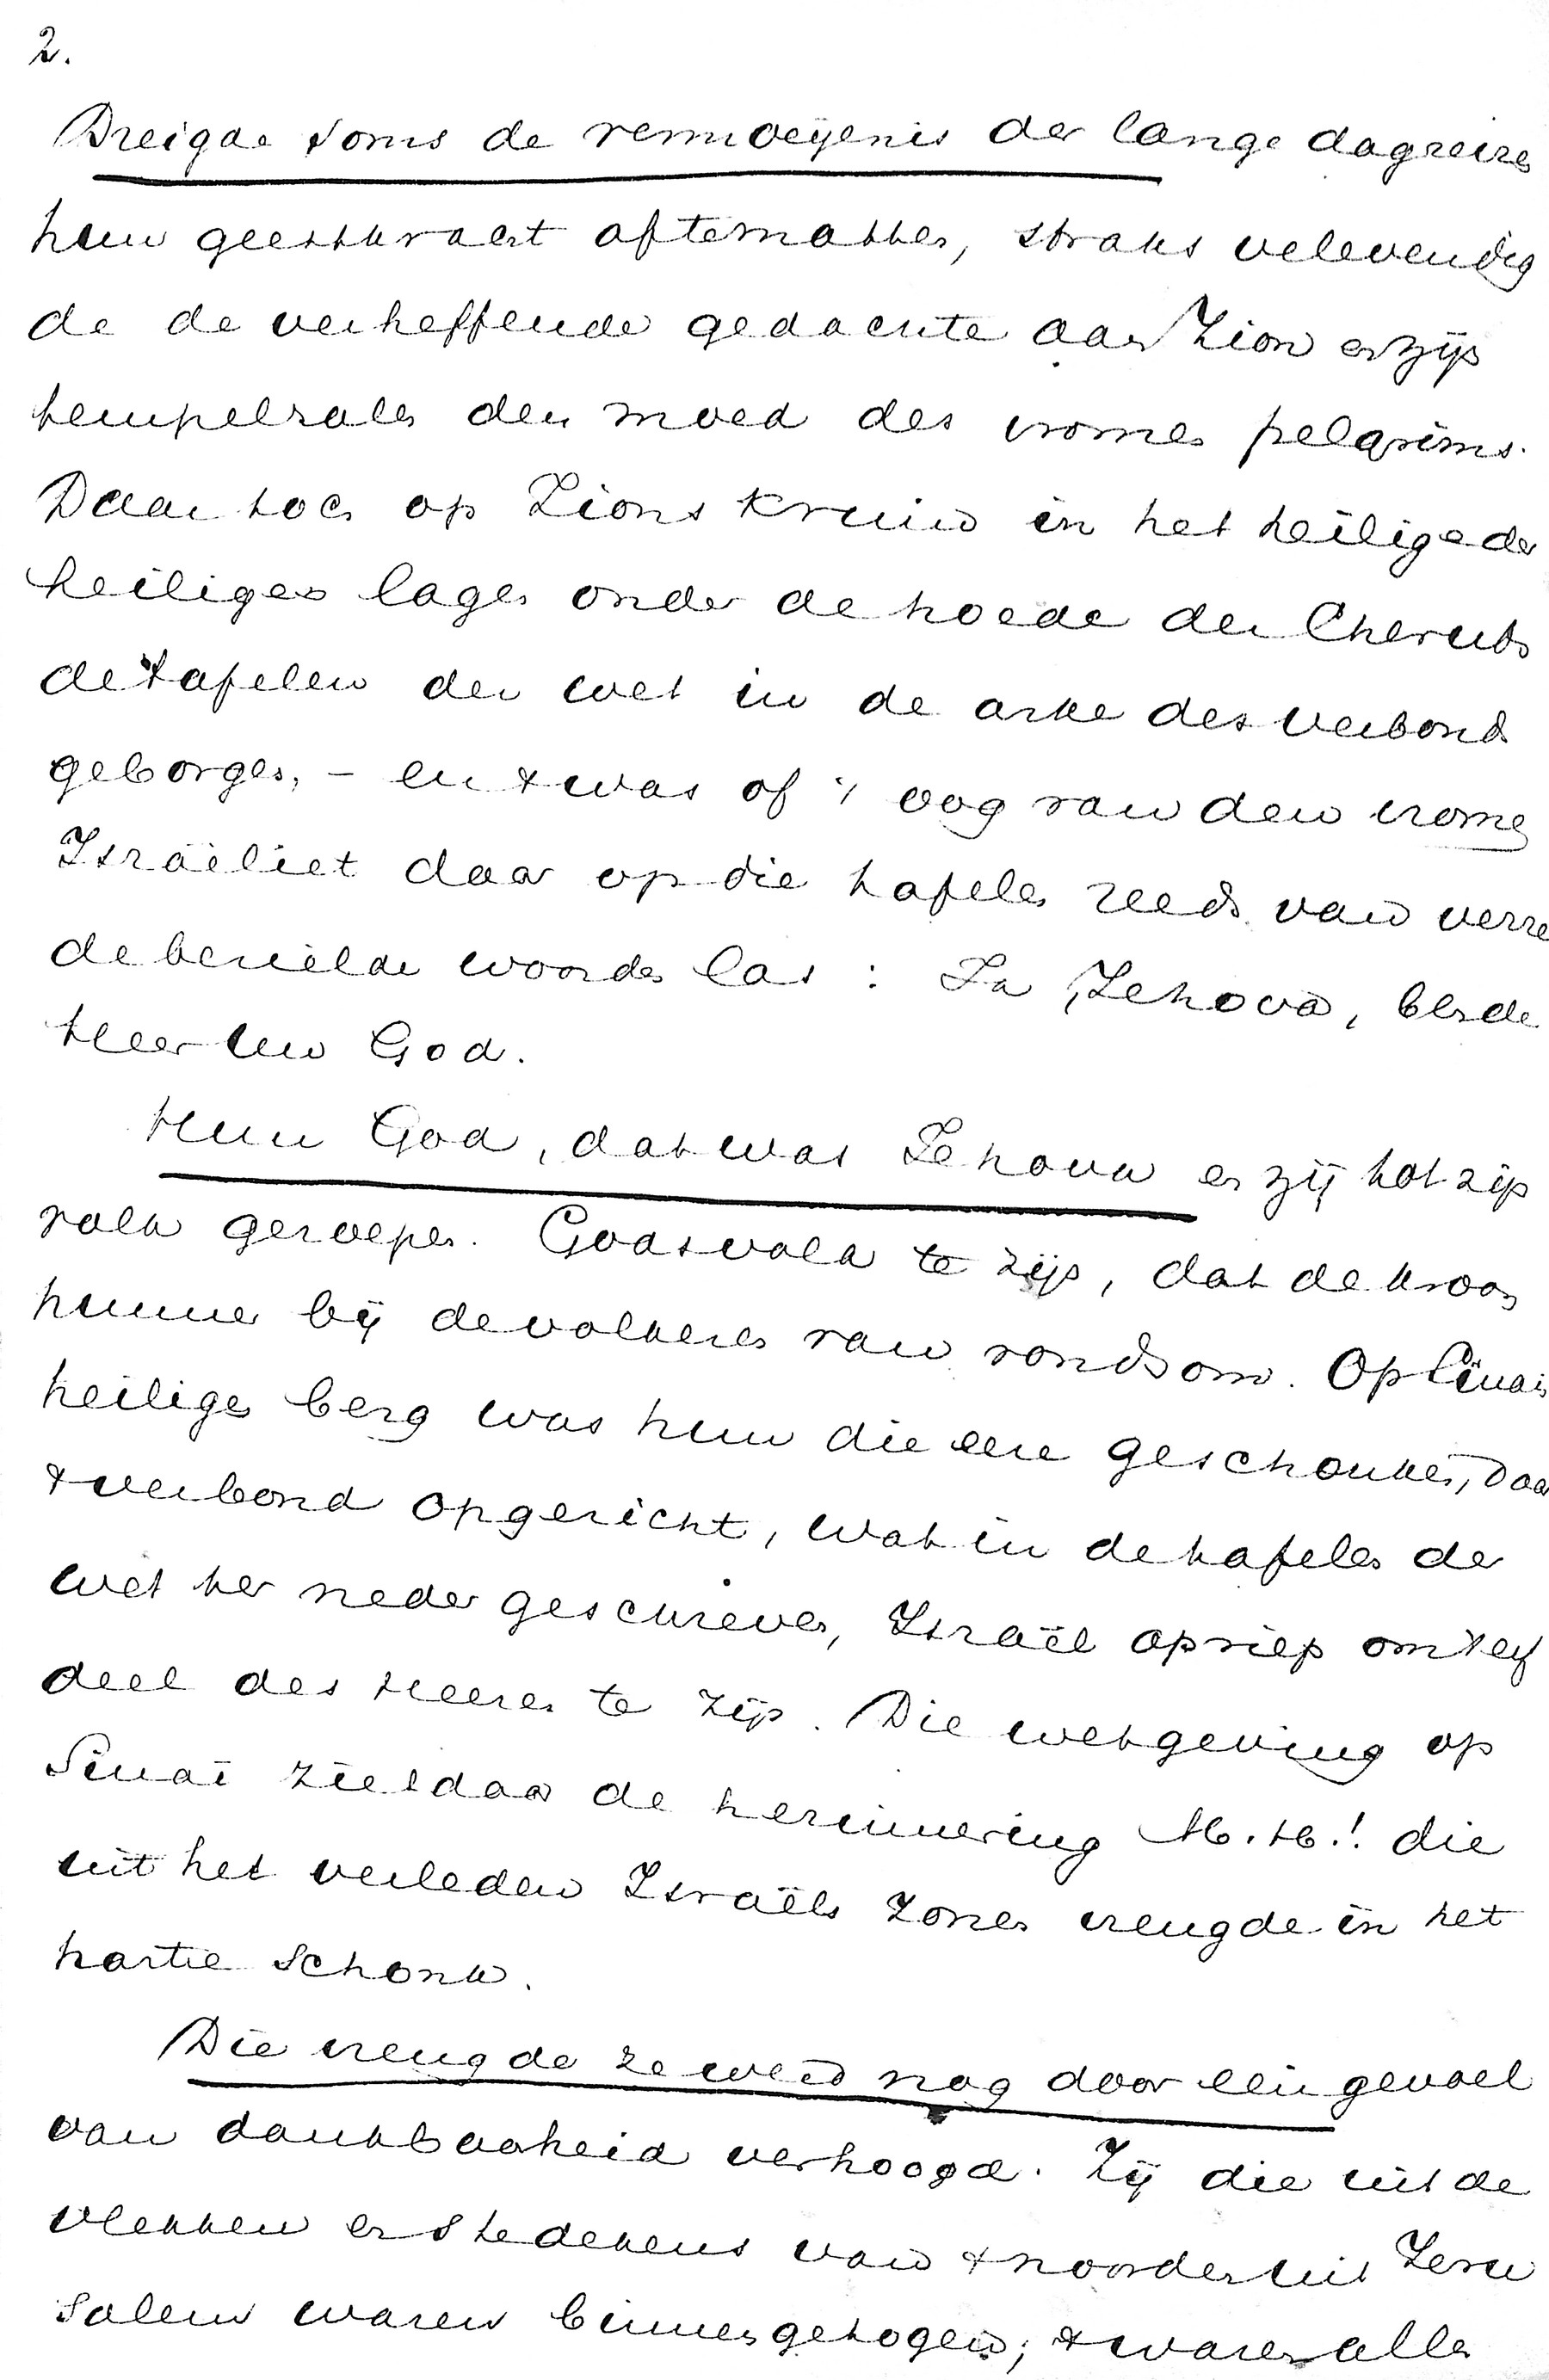 2.
Dreigde soms de vermoeyenis der lange dagreizen
hun geestkracht aftematten, straks velevendig
de de verheffende gedachte aan Zion en zijn
tempelzalen den moed des vromen pelgrims.
Daar toch op Zions kruin in het heilige der
heiligen lagen onder de hoede der Cherubs
de tafelen der wet in de arke des verbonds
geborgen, - en 't was of 't oog van den vromen
Israëliet daar op die tafelen reeds van verre
de bezielde woorden las: Ja, Jehova, ben de
Heer uw God.
Hun God, dat was Jehova en zij tot zijn
volk geroepen. Gods volk te zijn, dat de kroon
hunner bij de volkeren van rondsom. Op Sinais
heiligen berg was hun die eere geschonken, daar
't verbond opgericht, wat in de tafelen der
wet ter neder geschreven, Israël opriep om 't erf
deel des Heeren te zijn. Die wetgeving op
Sinaï ziet daar de herinnering M.H.! die
uit het verleden Israëls zonen vreugde in het
hartie schonk.
Die vreugde ze werd nog door een gevoel
van dankbaarheid verhoogd. Zij die uit de
vlekken en stedekens van 't noorden uit Jeru
salem waren binnengetogen; 't waren allen